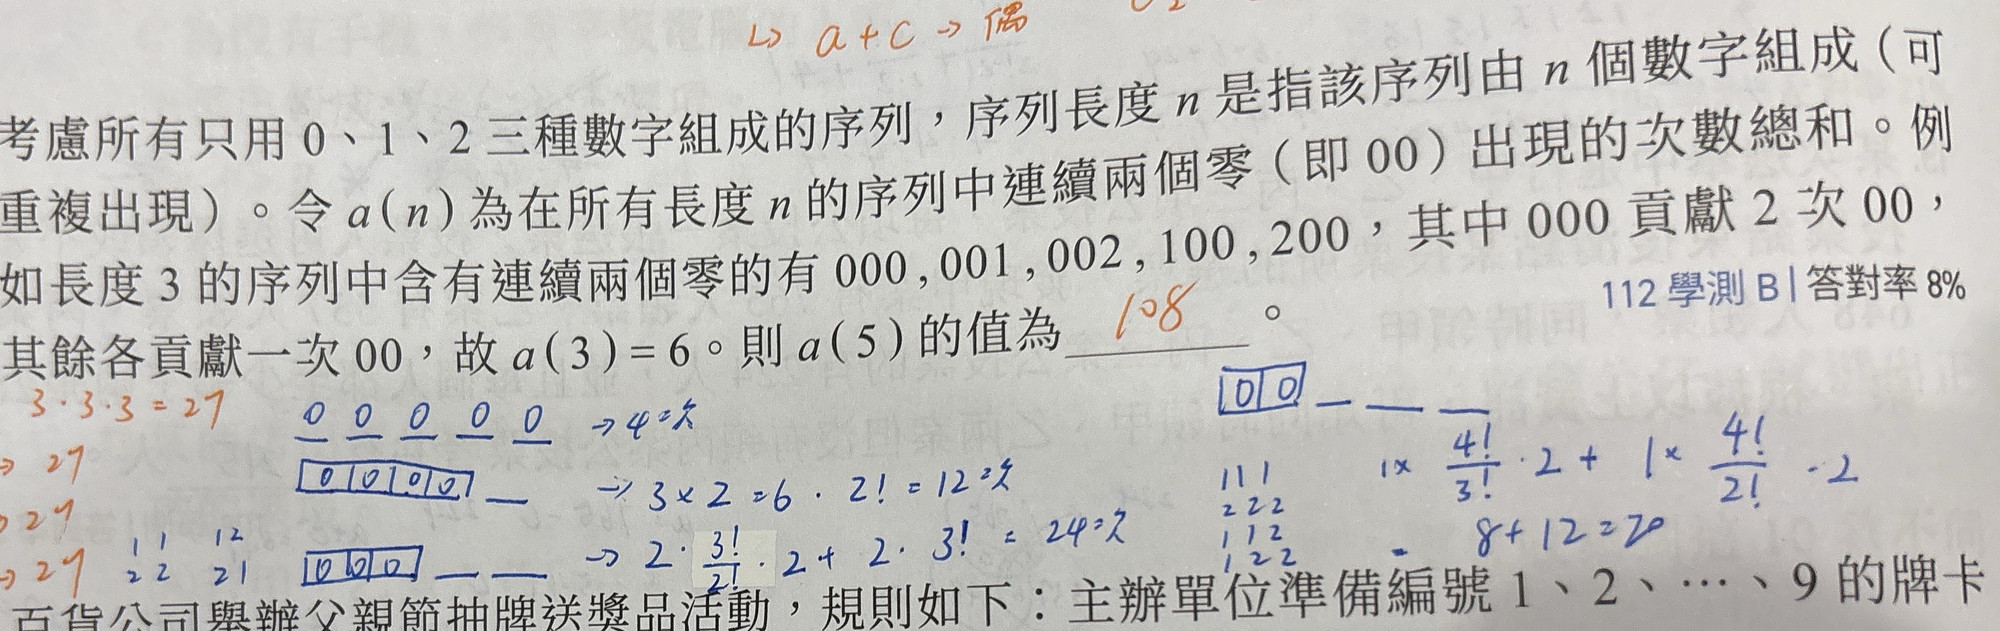 ↳ a+c → 偶
考慮所有只用 0、1、2 三種數字組成的序列,序列長度 n 是指該序列由 n 個數字組成(可
重複出現)。令 a(n) 為在所有長度 n 的序列中連續兩個零(即 00)出現的次數總和。例
如長度 3 的序列中含有連續兩個零的有 000,001,002,100,200,其中 000 貢獻 2 次 00,
其餘各貢獻一次 00,故 a(3)=6。則 a(5) 的值為 108 。
112 學測 B | 答對率 8%
3·3·3=27
→ 27
→ 27
→ 27
0 0 0 0 0 → 4次
0 0 0 0 _ → 3×2=6 · 2! = 12次
11 12
22 21
0 0 0 _ _ → 2 · 3!/2! · 2 + 2 · 3! = 24次
0 0 _ _ _
111
222
112
122
1× 4!/3! · 2 + 1× 4!/2! · 2
= 8+12=20
百貨公司舉辦父親節抽牌送獎品活動,規則如下:主辦單位準備編號 1、2、…、9 的牌卡